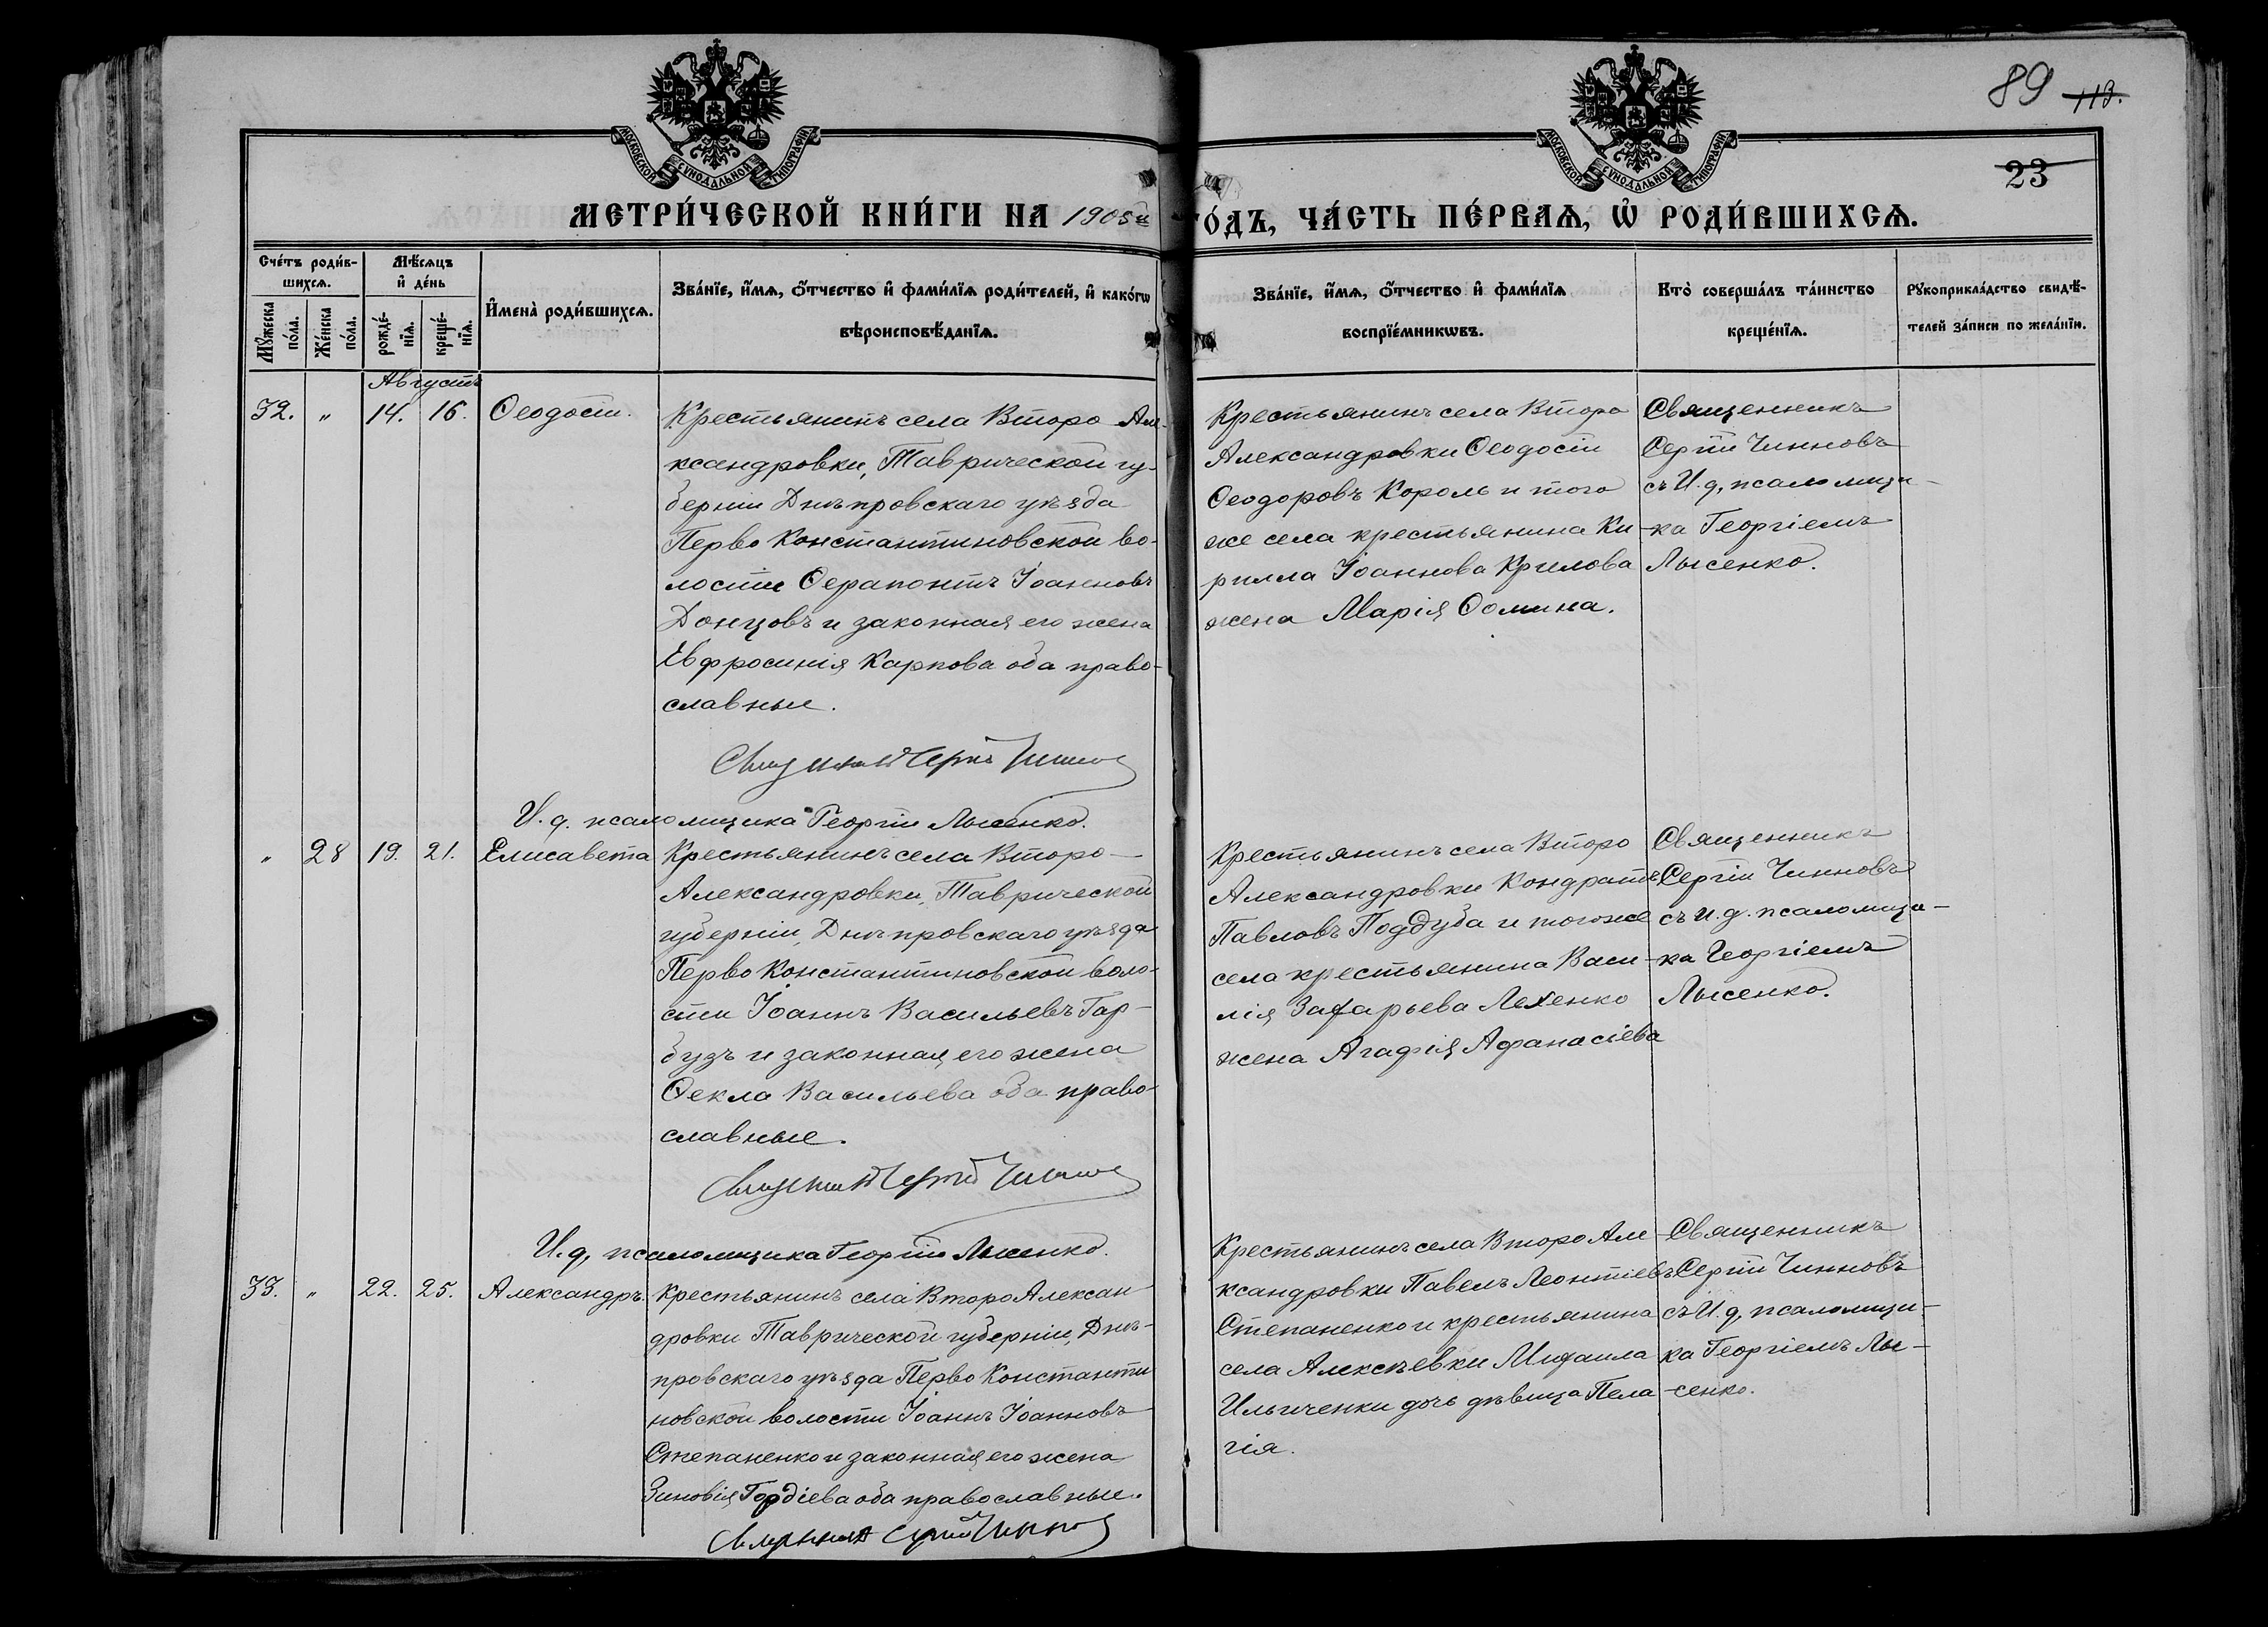 89 113.
23
МОСКОВСКОЙ СѴНОДАЛЬНОЙ ТИПОГРАФІИ
МОСКОВСКОЙ СѴНОДАЛЬНОЙ ТИПОГРАФІИ
МЕТРИ́ЧЕСКОЙ КНИ́ГИ НА 1905й ГО́ДЪ, ЧА́СТЬ ПЕ́РВАѦ, Ѡ҆ РОДИ́ВШИХСѦ.
Сче́тъ роди́в-
шихсѧ.
Мꙋ́жеска по́ла.
Же́нска по́ла.
Мѣ́сѧцъ
и҆ де́нь
рожде́-
нїѧ.
креще́-
нїѧ.
И҆мена̀ роди́вшихсѧ.
Зва́нїе, и҆́мѧ, ѻ҆́тчество и҆ фами́лїѧ роди́телей, и҆ како́гѡ
вѣроисповѣ́данїѧ.
Зва́нїе, и҆́мѧ, ѻ҆́тчество и҆ фами́лїѧ
воспрїе́мникѡвъ.
Кто̀ соверша́лъ та́инство
креще́нїѧ.
Рꙋкоприкла́дство свидѣ́-
телей за́писи по жела́нїю.
Августъ
32. " 14. 16. Ѳеодосій.
Крестьянинъ села Второ Але-
ксандровки, Таврической гу-
берніи Днѣпровскаго уѣзда
Перво Константиновской во-
лости Ѳерапонтъ Іоанновъ
Донцовъ и законная его жена
Евфросинія Карпова оба право-
славные.
Священникъ Сергій Чинновъ
И. д. псаломщика Георгій Лысенко.
Крестьянинъ села Второ
Александровки Ѳеодосій
Ѳеодоровъ Король и того
же села крестьянина Ки-
рилла Іоаннова Крилова
жена Марія Ѳомина.
Священникъ
Сергій Чинновъ
съ И. д. псаломщи-
ка Георгіемъ
Лысенко.
" 28 19. 21. Елисавета
Крестьянинъ села Второ-
Александровки, Таврической
губерніи, Днѣпровскаго уѣзда
Перво Константиновской воло-
сти Іоаннъ Васильевъ Гар-
бузъ и законная его жена
Ѳекла Васильева оба право-
славные.
Священникъ Сергій Чинновъ
И. д. псаломщика Георгій Лысенко.
Крестьянинъ села Второ
Александровки Кондратъ
Павловъ Поддуба и тогоже
села крестьянина Васи-
лія Захарьева Лехенко
жена Агафія Афанасіева
Священникъ
Сергій Чинновъ
съ И. д. псаломщи-
ка Георгіемъ
Лысенко.
33. " 22. 25. Александръ.
Крестьянинъ села Второ Алексан-
дровки Таврической губерніи, Днѣ-
провскаго уѣзда Перво Константи
новской волости Іоаннъ Іоанновъ
Степаненко и законная его жена
Зиновія Гордіева оба православные.
Священникъ Сергій Чинновъ
Крестьянинъ села Второ Але-
ксандровки Павелъ Леонтіевъ
Степаненко и крестьянина
села Алексѣевки Михаила
Ильиченки дочь дѣвица Пела-
гія.
Священникъ
Сергій Чинновъ
съ И. д. псаломщи-
ка Георгіемъ Лы-
сенко.